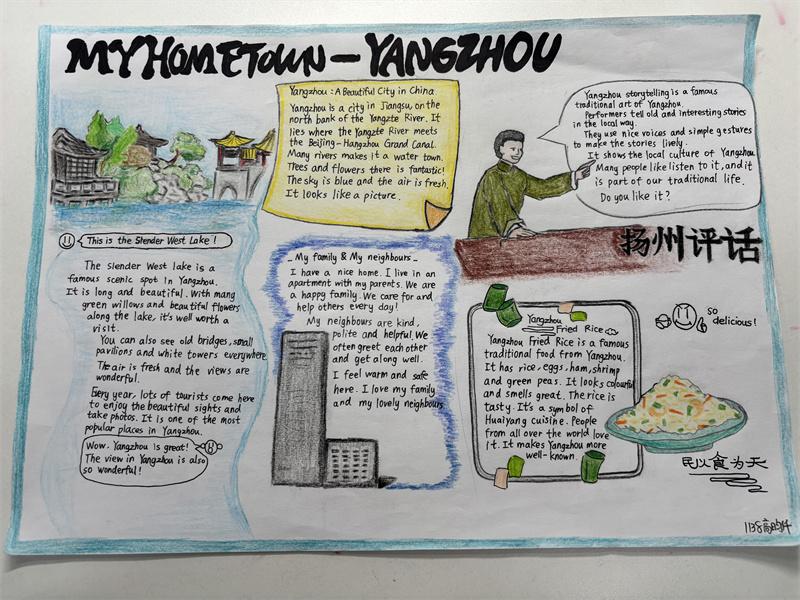 MY HOMETOWN-YANGZHOU
Yangzhou: A Beautiful City in China
Yangzhou is a city in Jiangsu, on the
north bank of the Yangzte River. It
lies where the Yangzte River meets
the Beijing-Hangzhou Grand Canal.
Many rivers makes it a water town.
Trees and flowers there is fantastic!
The sky is blue and the air is fresh.
It looks like a picture.
Yangzhou storytelling is a famous
traditional art of Yangzhou.
Performers tell old and interesting stories
in the local way.
They use nice voices and simple gestures
to make the stories lively.
It shows the local culture of Yangzhou
Many people like listen to it, and it
is part of our traditional life.
Do you like it?
扬州评话
This is the Slender West Lake!
The Slender West lake is a
famous scenic spot in Yangzhou.
It is long and beautiful. With many
green willows and beautiful flowers
along the lake, it's well worth a
visit.
You can also see old bridges, small
pavilions and white towers everywhere
The air is fresh and the views are
wonderful.
Every year, lots of tourists come here
to enjoy the beautiful sights and
take photos. It is one of the most
popular places in Yangzhou.
Wow. Yangzhou is great!
The view in Yangzhou is also
so wonderful!
My family & My neighbours
I have a nice home. I live in an
apartment with my parents. We are
a happy family. We care for and
help others every day!
My neighbours are kind,
polite and helpful. We
often greet each other
and get along well.
I feel warm and safe
here. I love my family
and my lovely neighbours
Yangzhou
Fried Rice
Yangzhou Fried Rice is a famous
traditional food from Yangzhou.
It has rice, eggs, ham, shrimp
and green peas. It looks colourful
and smells great. The rice is
tasty. It's a symbol of
Huaiyang cuisine. People
from all over the world love
it. It makes Yangzhou more
well-known.
so
delicious!
民以食为天
1138高